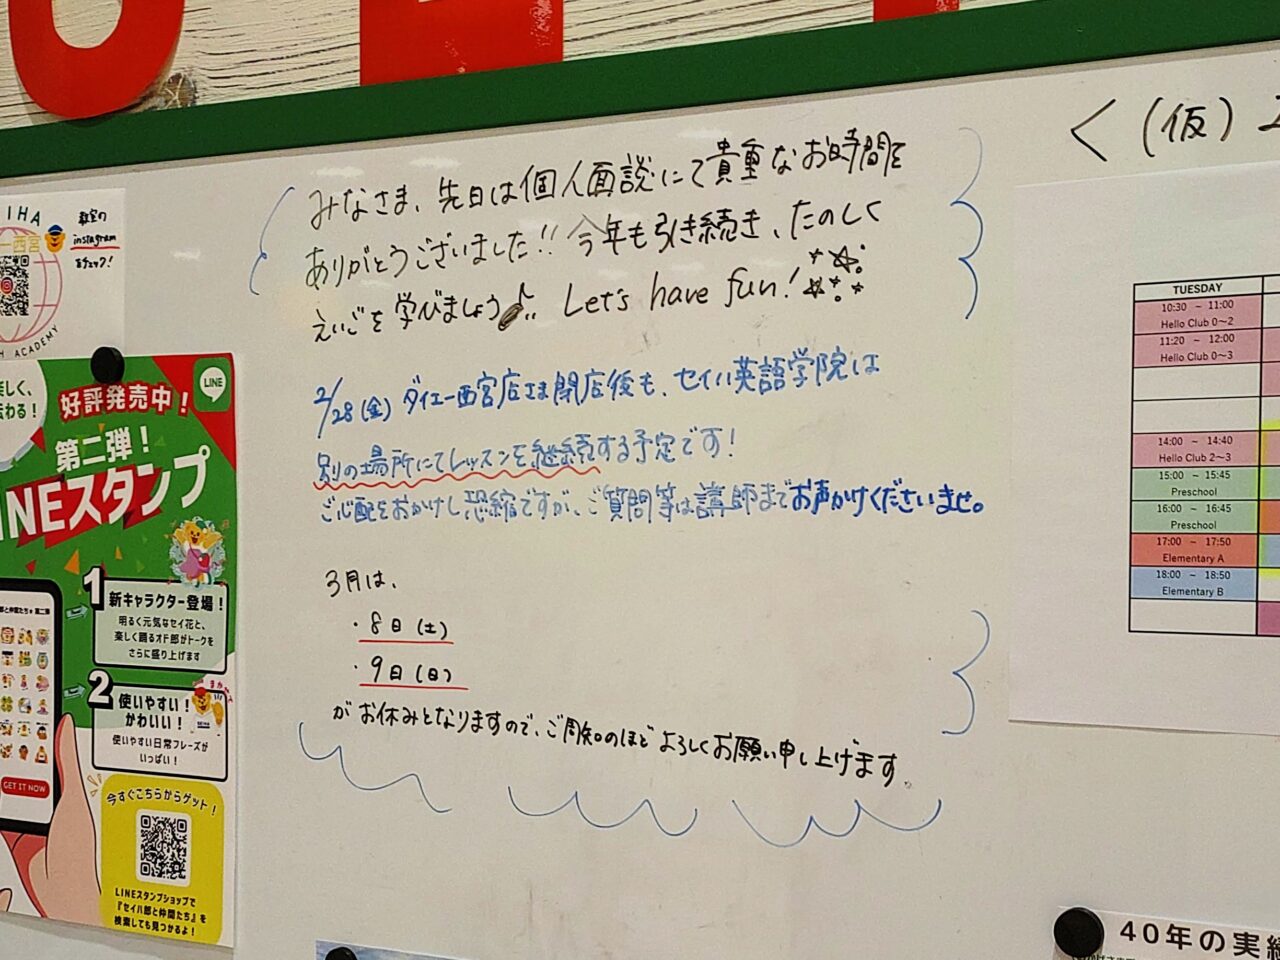 みなさま、先日は個人面談にて貴重なお時間を
ありがとうございました!! 今年も引き続き、たのしく
えいごを学びましょう♪ Let's have fun!
2/28(金) ダイエー西宮店さま閉店後も、セイハ英語学院は
別の場所にてレッスンを継続する予定です!
ご心配をおかけし恐縮ですが、ご質問等は講師までお声かけくださいませ。
3月は、
・8日(土)
・9日(日)
がお休みとなりますので、ご周知のほどよろしくお願い申し上げます。
<(仮)
TUESDAY
10:30 ~ 11:00
Hello Club 0~2
11:20 ~ 12:00
Hello Club 0~3
14:00 ~ 14:40
Hello Club 2~3
15:00 ~ 15:45
Preschool
16:00 ~ 16:45
Preschool
17:00 ~ 17:50
Elementary A
18:00 ~ 18:50
Elementary B
40年の実績
IHA
ー西宮
ACADEMY
教室の
instagram
をチェック!
楽しく、
伝わる!
好評発売中!
LINE
第二弾!
INEスタンプ
1
新キャラクター登場!
明るく元気なセイ花と、
楽しく踊るオド郎がトークを
さらに盛り上げます
2
使いやすい!
かわいい!
使いやすい日常フレーズが
いっぱい!
GET IT NOW
今すぐこちらからゲット!
LINEスタンプショップで
『セイハ郎と仲間たち』を
検索しても見つかるよ!